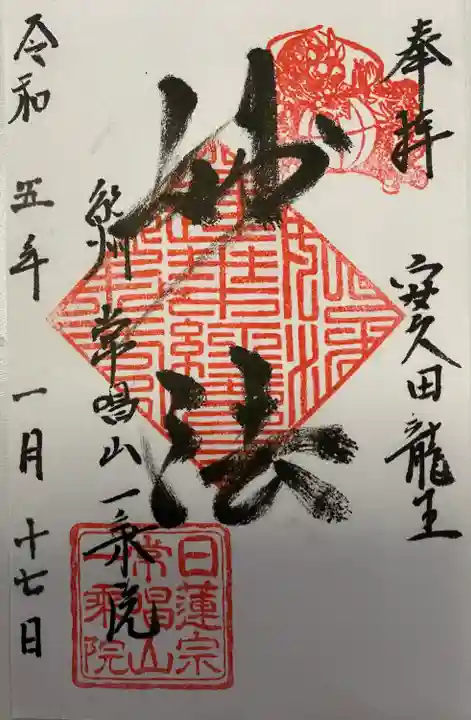 奉拝
安久田龍王
妙法
常唱山一乗院
令和五年一月十七日
日蓮宗
常唱山
一乘院